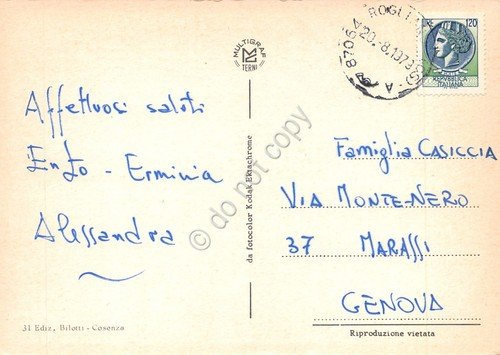 MULTIGRAF
TERNI
87064 ROGLI
20.-8.1973
A
120
REPVBBLICA
ITALIANA
Affettuosi saluti
Enzo - Erminia
Alessandra
da fotocolor Kodak Ektachrome
do not copy
Famiglia CASICCIA
VIA MONTE-NERO
37 MARASSI
GENOVA
31 Ediz. Bilotti - Cosenza
Riproduzione vietata